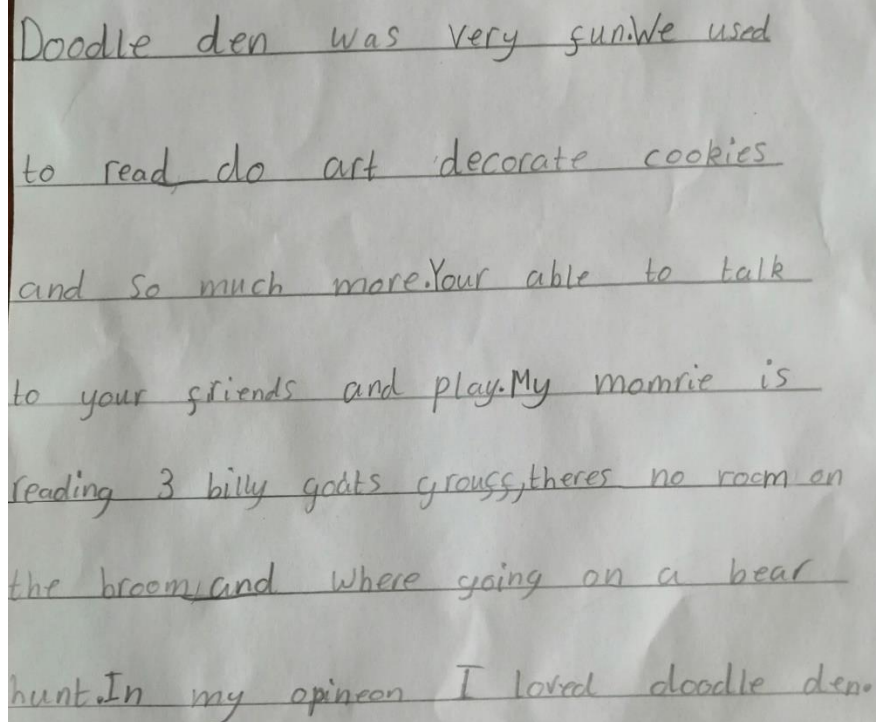 Doodle den was very fun.We used
to read do art decorate cookies
and so much more.Your able to talk
to your friends and play.My momrie is
reading 3 billy goats grouff,theres no room on
the broom,and where going on a bear
hunt.In my opineon I loved doodle den.